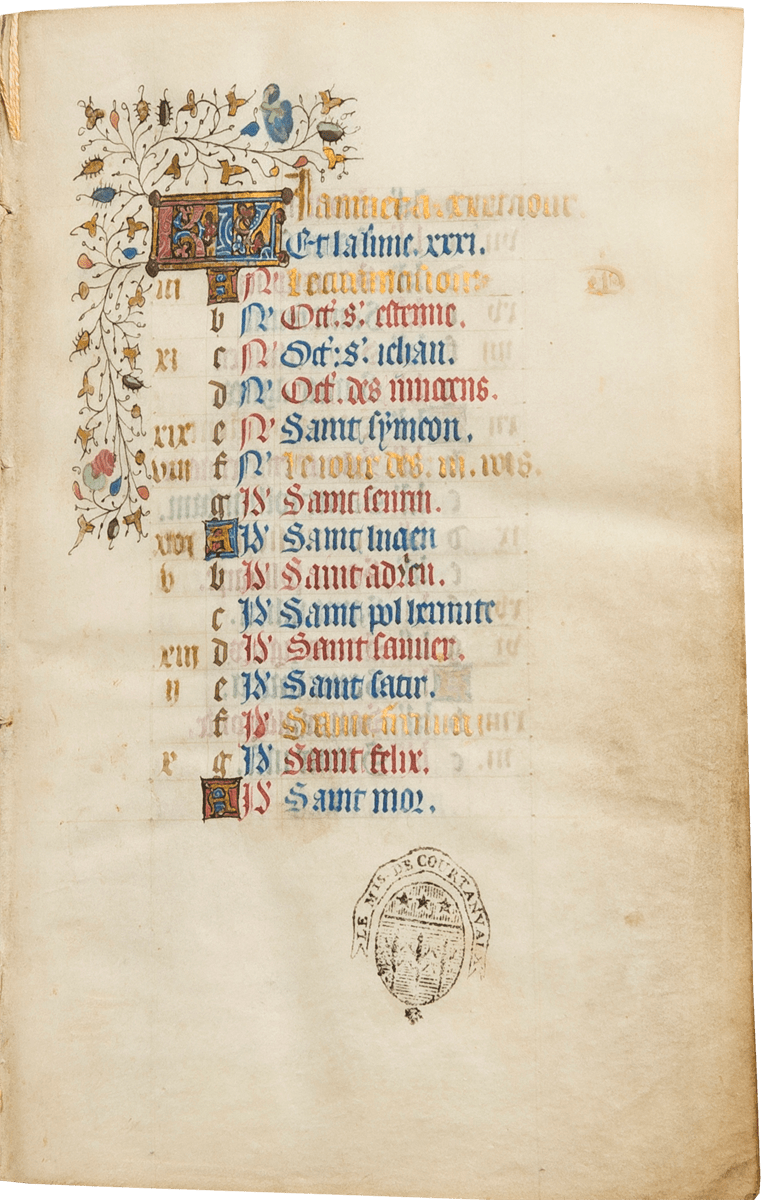 KL Januier a .xxxi. iour.
Et la lune .xxx.
iii A N' La circuncision
b N' Oct'. s'. estienne.
xi c N' Oct'. s'. iehan.
d N' Oct'. des innocens.
xix e N' Saint symeon.
viii f N' le iour des .iii. rois.
g Id' Saint seurin.
xvi A Id' Saint lucien
v b Id' Saint adrien.
c Id' Saint pol hermite
xiii d Id' Saint sauuer.
ii e Id' Saint satir.
f Id' Saint firmin
x g Id' Saint felix.
A Id' Saint mor.
LE MIS. DE COURTANVAUX